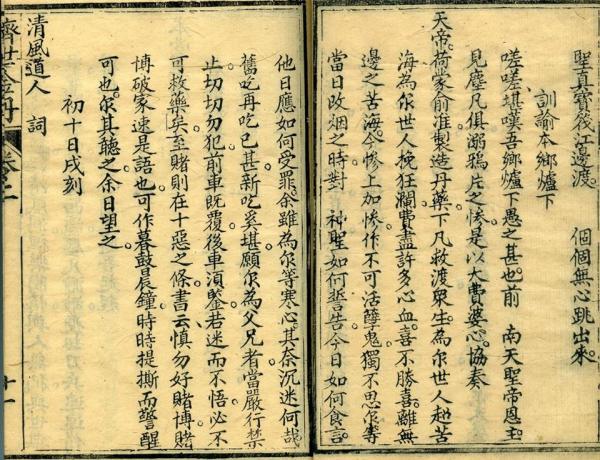 聖真寶筏江邊渡。 個個無心跳出來。
訓諭本鄉爐下
嗟嗟堪嘆吾鄉爐下愚之甚也前 南天聖帝恩主
見塵凡俱溺鴉片之慘是以大費婆心協奏
天帝荷蒙俞准製造丹藥下凡救渡眾生為尔世人超苦
海為尔世人挽狂瀾費盡許多心血喜不勝喜離無
邊之苦海今慘上加慘作不可活孽鬼獨不思尔等
當日收烟之時對 神聖如何誓告今日如何食言
他日應如何受罪余雖為尔等寒心其奈沉迷何哉
舊吃再吃已甚新吃奚堪願尔為父兄者當嚴行禁
止切切勿犯前車既覆後車須鑒若迷而不悟必不
可救藥矣至賭則在十惡之條書云慎勿好賭博賭
博破家速是語也可作暮鼓晨鐘時時提撕而警醒
可也尔其聽之余日望之
初十日戌刻
清風道人 詞
濟世金丹 卷二 十一